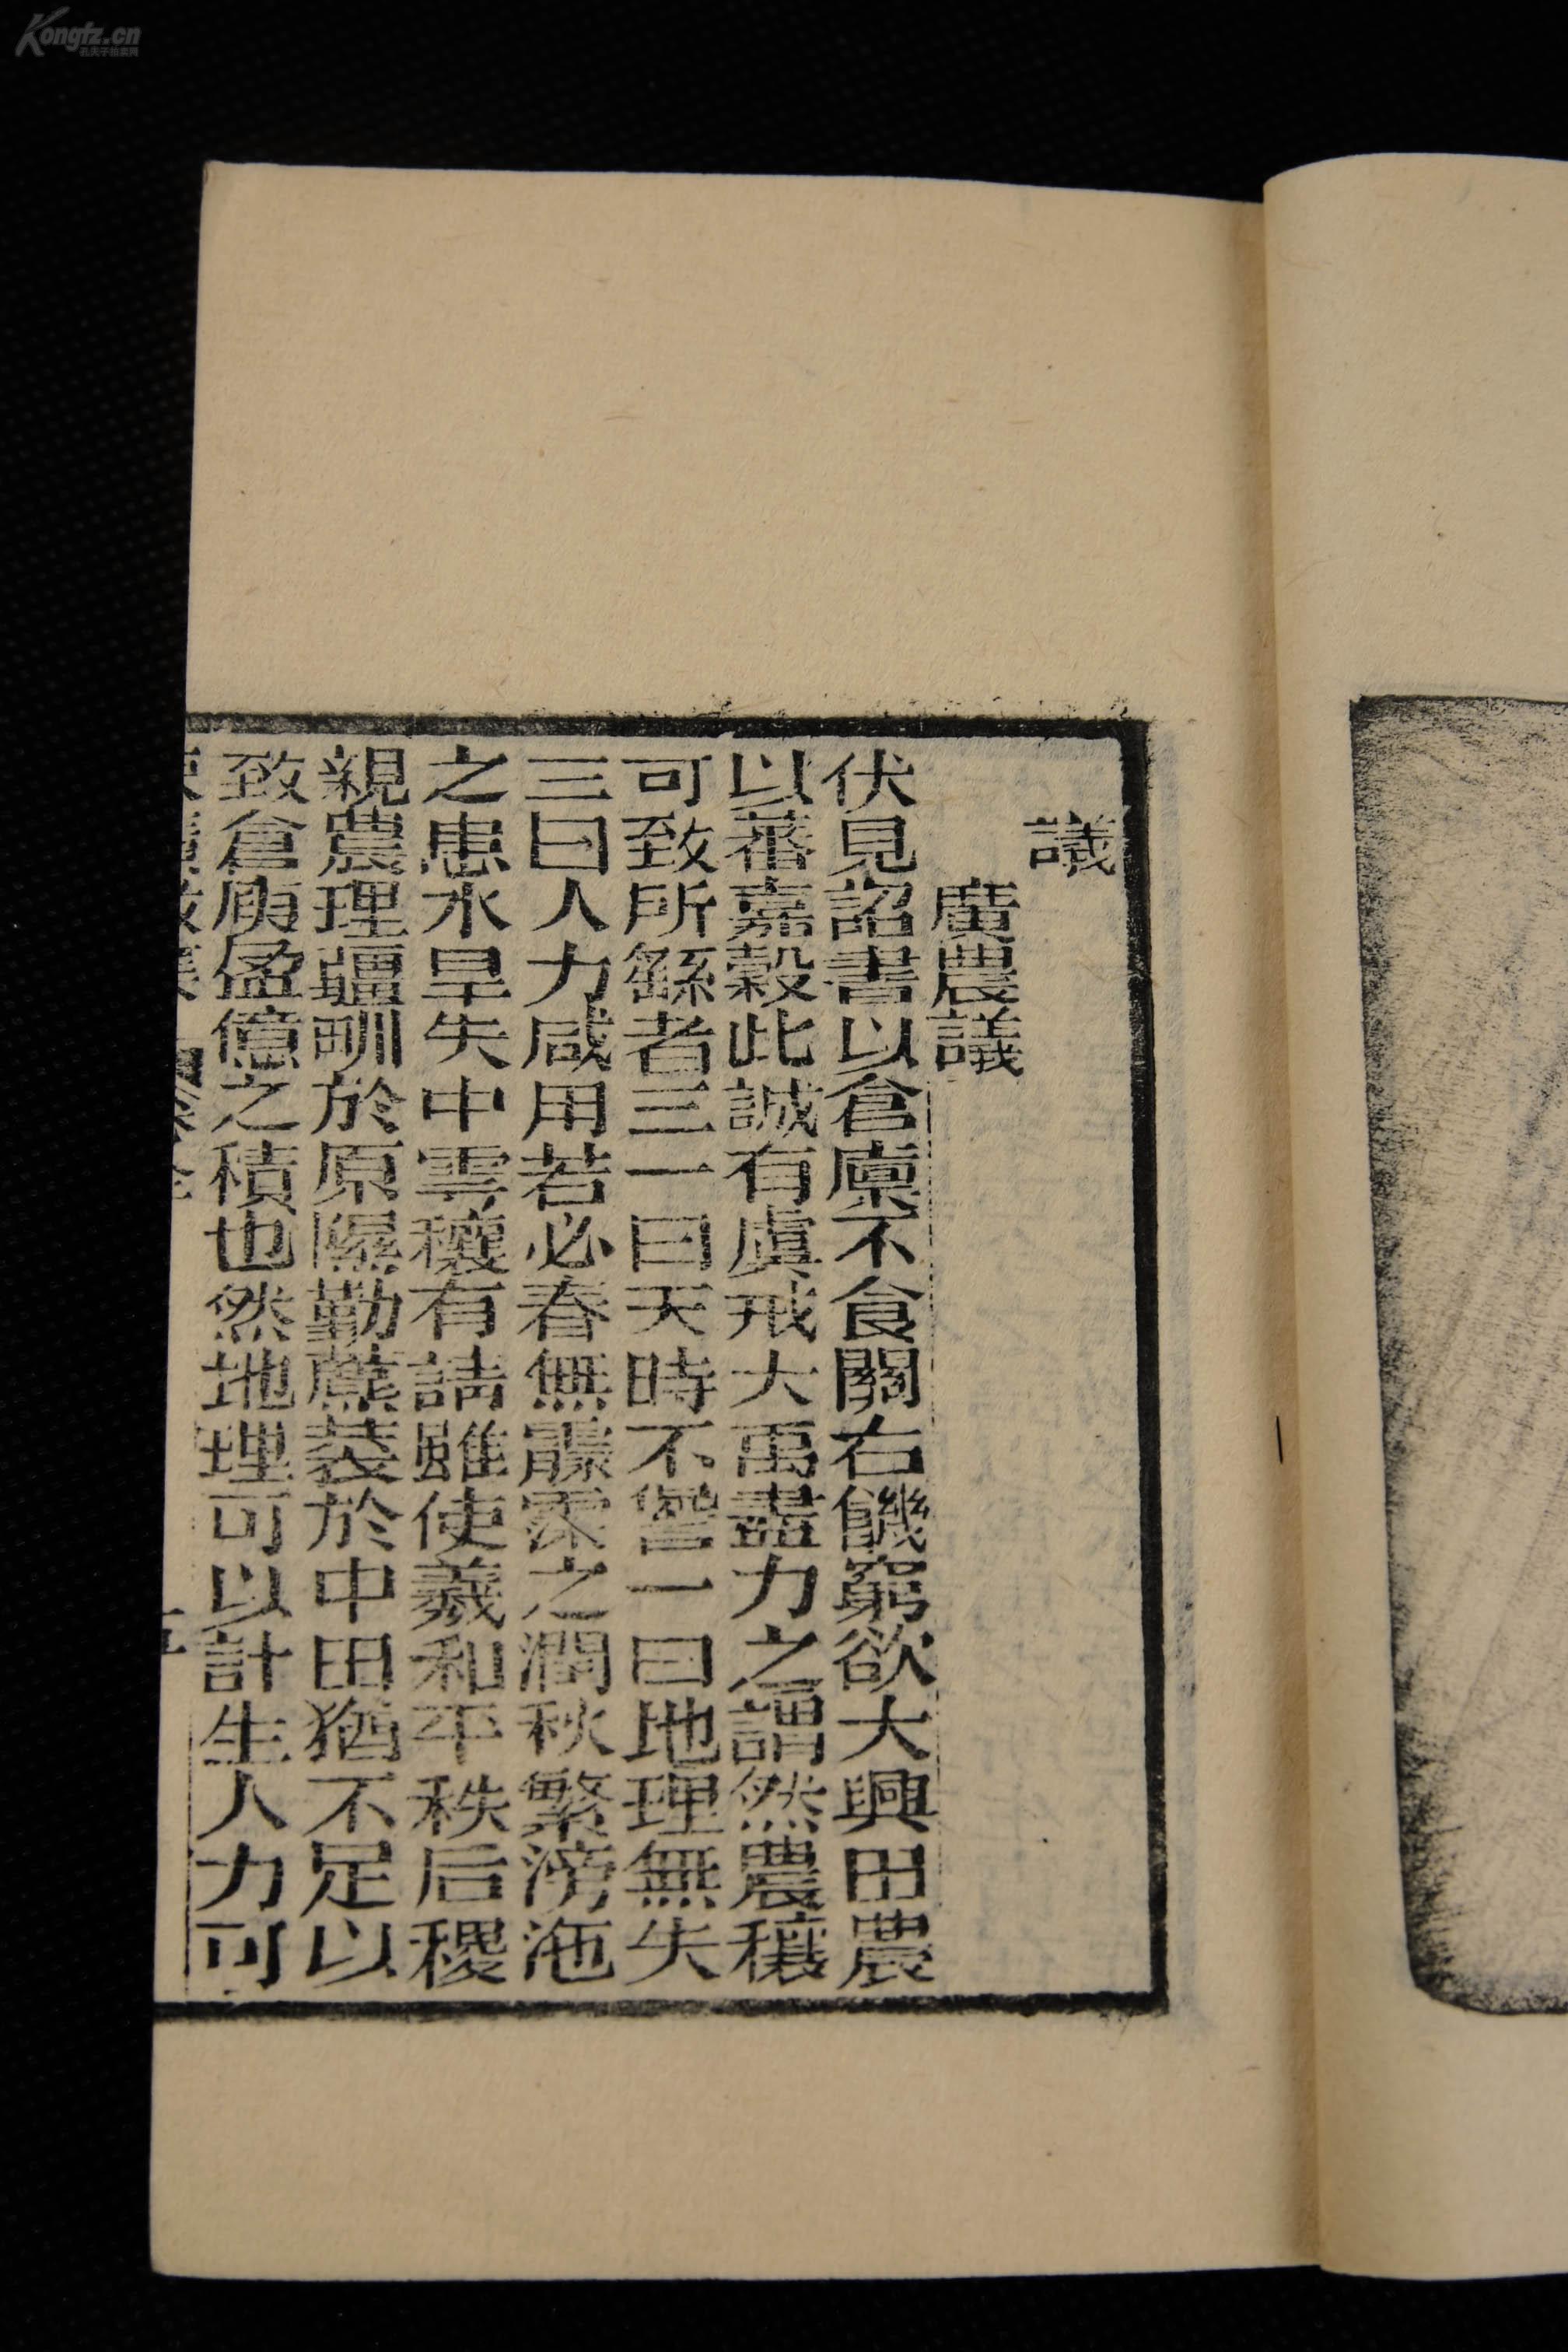 議
廣農議
伏見詔書以倉廩不食關右饑窮欲大興田農
以蕃嘉穀此誠有虞戒大禹盡力之謂然農穰
可致所繇者三一曰天時不諐一曰地理無失
三曰人力咸用若必春無霢霂之潤秋繁滂沲
之患水旱失中雩穰有請雖使羲和平秩后稷
親農理疆甽於原隰勤藨蔉於中田猶不足以
致倉庾盈億之積也然地理可以計生人力可
Kongfz.cn
孔夫子拍卖网